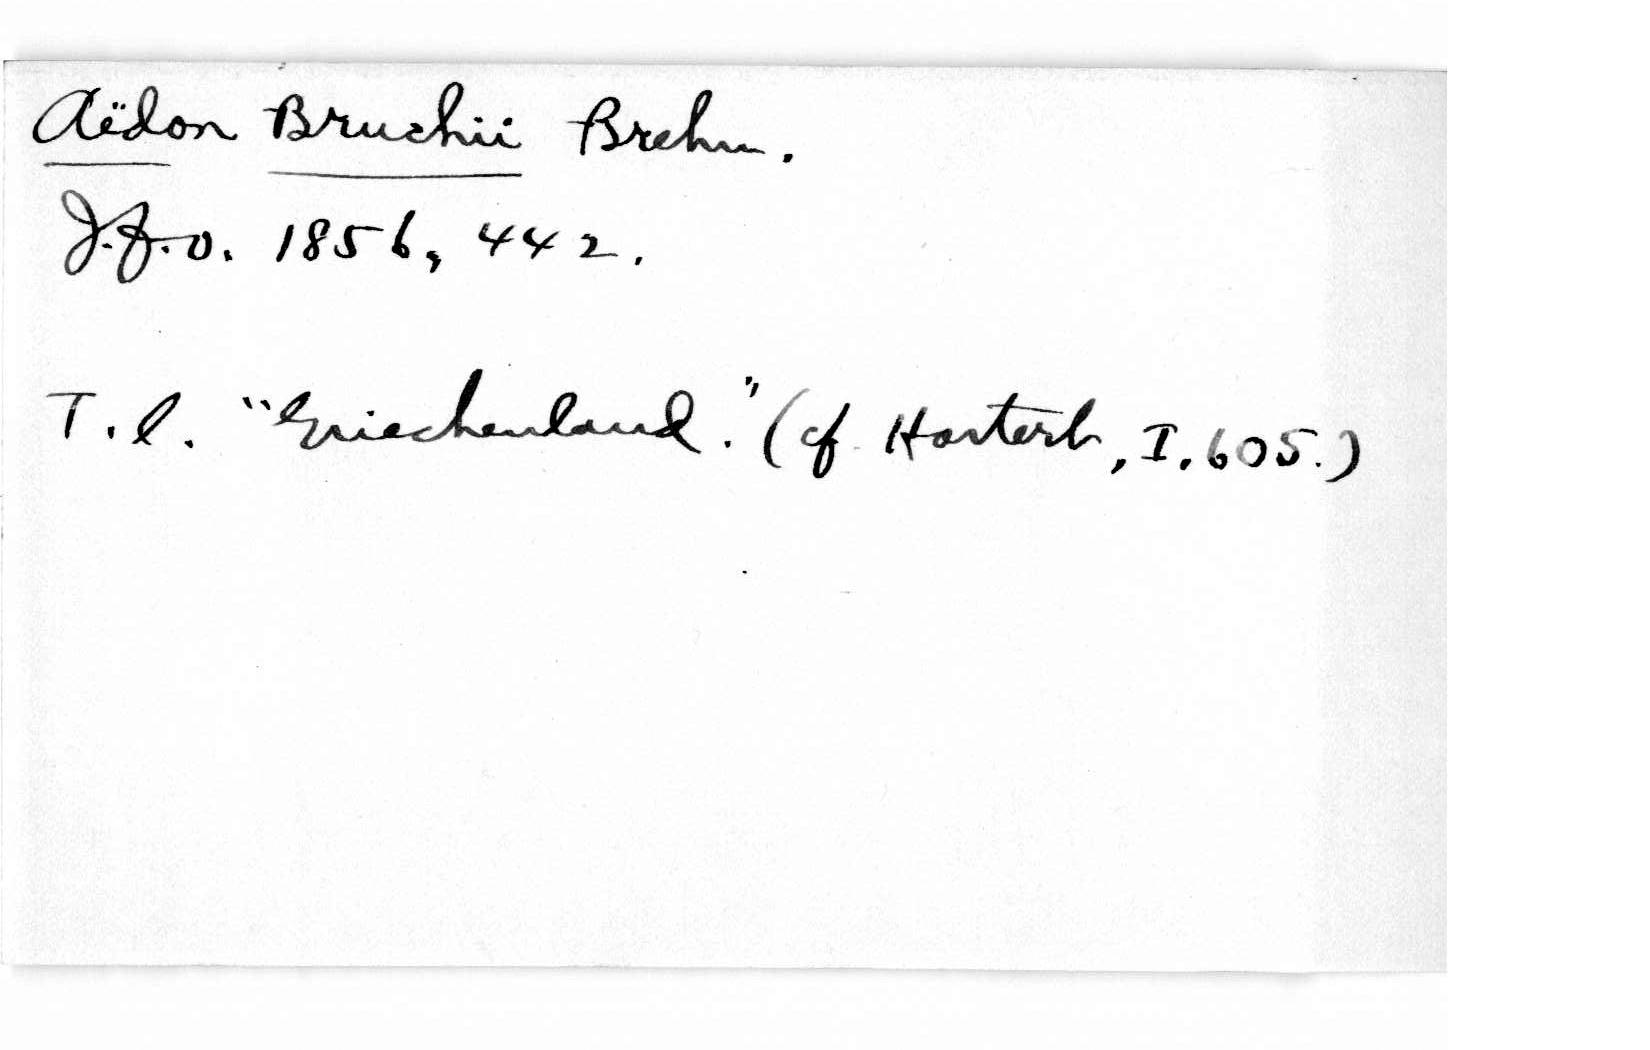 Aëdon Bruchii Brehm.
J.f.O. 1856, 442.
T.l. "Griechenland." (cf. Hartert, I, 605.)